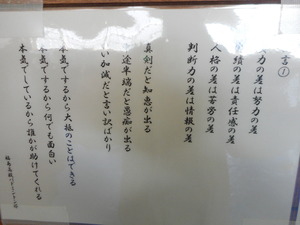 言①
力の差は努力の差
績の差は責任感の差
人格の差は苦労の差
判断力の差は情報の差
真剣だと知恵が出る
途半端だと愚痴が出る
い加減だと言い訳ばかり
本気でするから大抵のことはできる
本気でするから何でも面白い
本気でしているから誰かが助けてくれる